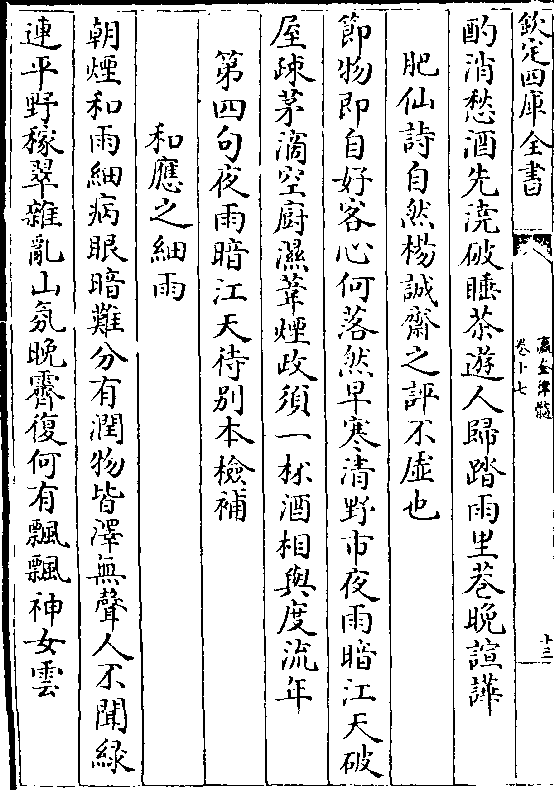 欽定四庫全書
瀛奎律髓
卷十七
十三
酌消愁酒先澆破睡茶遊人歸踏雨里巷晚諠譁
肥仙詩自然楊誠齋之評不虛也
節物即自好客心何落然早寒清野市夜雨暗江天破
屋疎茅滴空廚濕葦煙政須一杯酒相與度流年
第四句夜雨暗江天待別本檢補
和應之細雨
朝煙和雨細病眼暗難分有潤物皆澤無聲人不聞緑
連平野稼翠雜亂山氛晩霽復何有飄飄神女雲